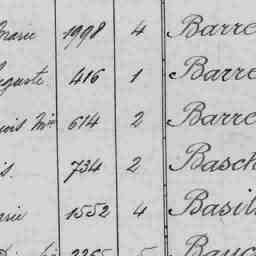 Marie 1998 4 Barre
Auguste 416 1 Barre
Louis Min 614 2 Barre
is. 734 2 Basch
Marie 1552 4 Basil
2265 5 Bauc